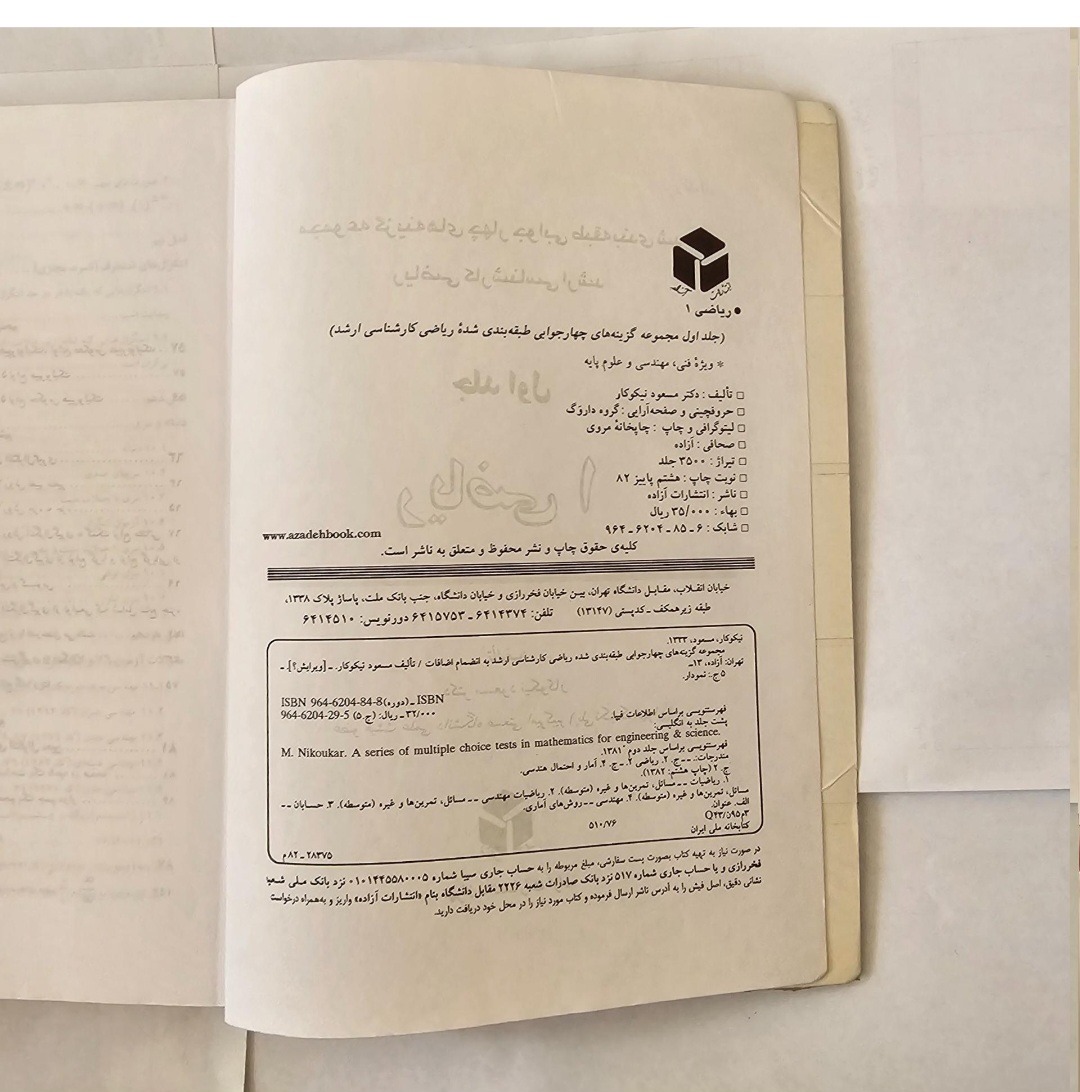 ● ریاضی ۱
(جلد اول مجموعه گزینه‌های چهارجوابی طبقه‌بندی شدهٔ ریاضی کارشناسی ارشد)
* ویژهٔ فنی، مهندسی و علوم پایه
□ تألیف : دکتر مسعود نیکوکار
□ حروفچینی و صفحه‌آرایی : گروه داروَگ
□ لیتوگرافی و چاپ : چاپخانهٔ مروی
□ صحافی : آزاده
□ تیراژ : ۳۵۰۰ جلد
□ نوبت چاپ : هشتم پاییز ۸۲
□ ناشر : انتشارات آزاده
□ بهاء : ۳۵/۰۰۰ ریال
□ شابک : ۶ - ۸۵ - ۶۲۰۴ - ۹۶۴
www.azadehbook.com
کلیه‌ی حقوق چاپ و نشر محفوظ و متعلق به ناشر است.
خیابان انقلاب، مقابل دانشگاه تهران، بین خیابان فخررازی و خیابان دانشگاه، جنب بانک ملت، پاساژ پلاک ۱۳۳۸،
طبقه زیرهمکف - کدپستی (۱۳۱۴۷) تلفن: ۶۴۱۴۳۷۴ - ۶۴۱۵۷۵۳ دورنویس: ۶۴۱۴۵۱۰
نیکوکار، مسعود، ۱۳۳۳.
مجموعه گزینه‌های چهارجوابی طبقه‌بندی شده ریاضی کارشناسی ارشد به انضمام اضافات / تألیف مسعود نیکوکار. ـ [ویرایش؟]. ـ
تهران: آزاده، ۱۳ـ
۵ ج.: نمودار.
ISBN 964-6204-84-8 (دوره) ـ ISBN
964-6204-29-5 (ج. ۵) ۳۲/۰۰۰ ـ ریال:
فهرستنویسی براساس اطلاعات فیپا.
پشت جلد به انگلیسی:
M. Nikoukar. A series of multiple choice tests in mathematics for engineering & science.
فهرستنویسی براساس جلد دوم ۱۳۸۱.
مندرجات: ــ ج. ۲. ریاضی ۲. ـ ج. ۴. آمار و احتمال هندسی.
ج. ۲ (چاپ هشتم: ۱۳۸۲).
۱. ریاضیات ــ مسائل، تمرین‌ها و غیره (متوسطه). ۲. ریاضیات مهندسی ــ مسائل، تمرین‌ها و غیره (متوسطه). ۳. حسابان ــ
مسائل، تمرین‌ها و غیره (متوسطه). ۴. مهندسی ــ روش‌های آماری.
الف. عنوان.
۳م۹۵ن/Q۴۳
۵۱۰/۷۶
کتابخانه ملی ایران
۲۸۳۷۵ ـ ۸۲م
در صورت نیاز به تهیه کتاب بصورت پست سفارشی، مبلغ مربوطه را به حساب جاری سیبا شماره ۰۱۰۱۴۴۵۵۸۰۰۰۵ نزد بانک ملی شعبه
فخررازی و یا حساب جاری شماره ۵۱۷ نزد بانک صادرات شعبه ۲۲۲۶ مقابل دانشگاه بنام «انتشارات آزاده» واریز و به‌همراه درخواست
نشانی دقیق، اصل فیش را به آدرس ناشر ارسال فرموده و کتاب مورد نیاز را در محل خود دریافت دارید.